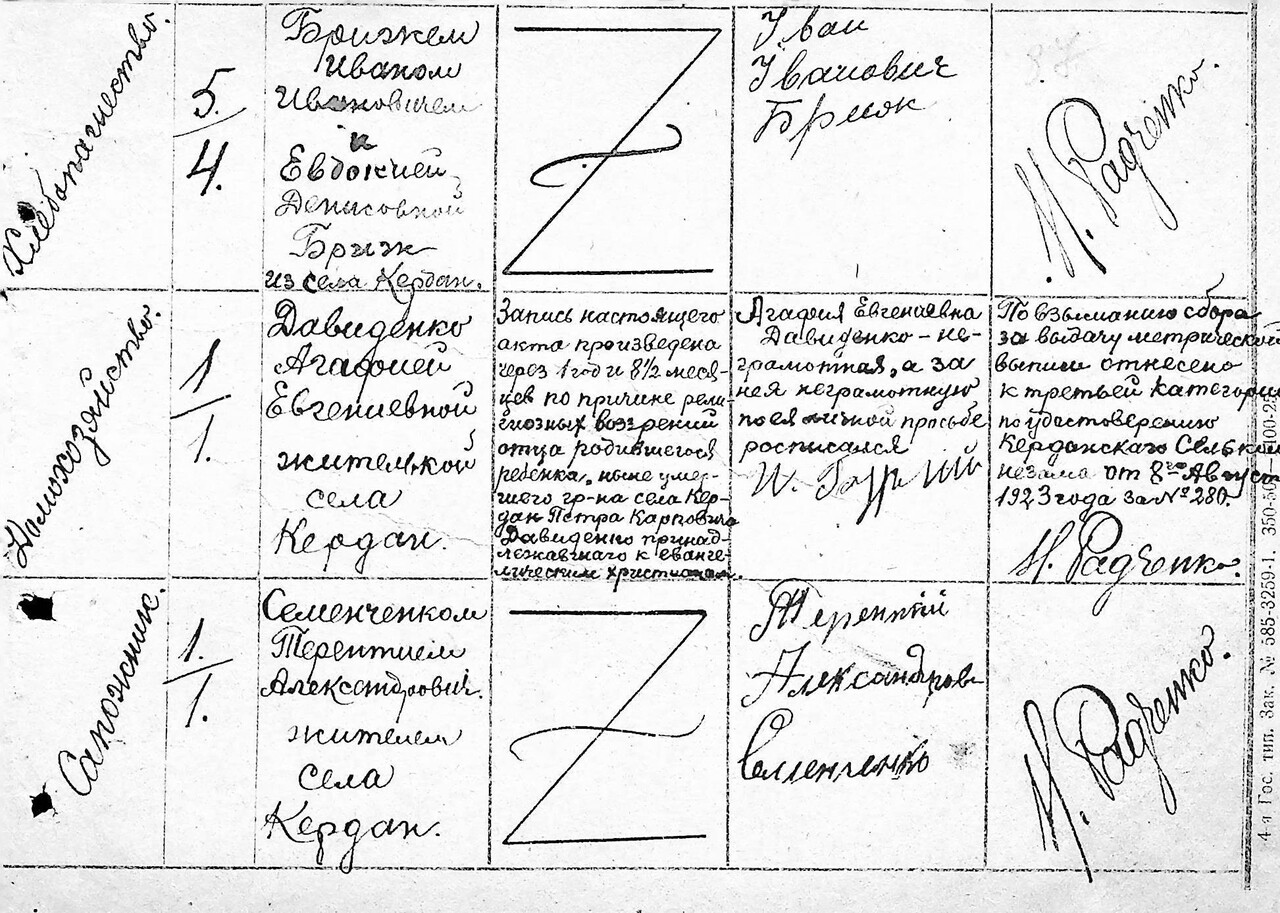 Хлебопашество.
5.
4.
Брижем
Иваном
Ивановичем
и
Евдокией
Денисовной
Бриж
из села Кердан.
Іван
Іванович
Бриж
Н. Радченко.
Домохозяйство.
1
1.
Давиденко
Агафией
Евгениевной
жителькой
села
Кердан.
Запись настоящего
акта произведена
через 1 год и 8 1/2 меся-
цев по причине рели-
гиозных воззрений
отца родившегося
ребенка, ныне умер-
шего гр-на села Кер-
дан Петра Карповича
Давиденко принад-
лежавшаго к еванге-
лическим христианам.
Агафия Евгениевна
Давиденко – не-
грамотная, а за
нея неграмотную
по ея личной просьбе
росписался
По взыманию сбора
за выдачу метрической
выписи отнесено
к третьей категории
по удостоверению
Керданскаго Сельком
незама от 8го Август
1923 года за № 280.
Н. Радченко.
Сапожник.
1.
1.
Семенченком
Терентием
Александрович.
жителем
села
Кердан.
Терентий
Александрови
Семенченко
Н. Радченко.
4-я Гос. тип. Зак. № 585-3259-1. 350-50